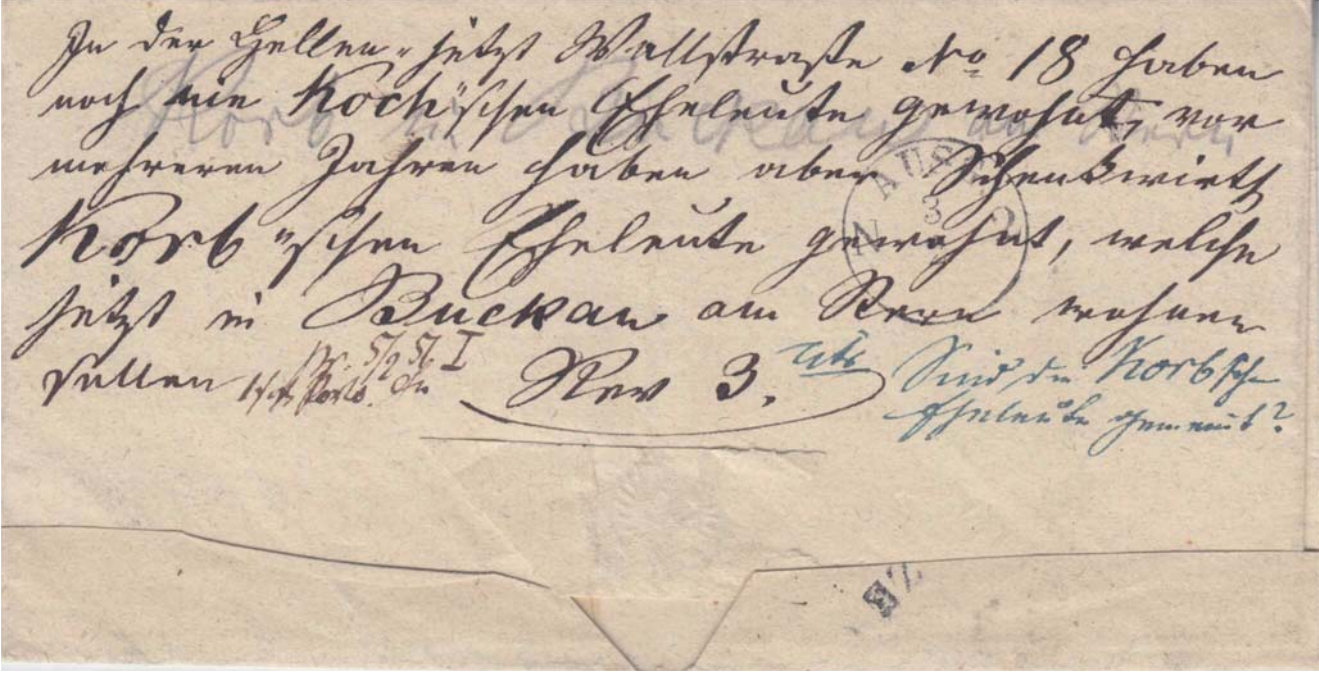 In der Hellen- jetzt Wallstraße No 18 haben
noch nie Koch'schen Eheleute gewohnt, vor
mehreren Jahren haben aber Schenkwirth
Korb'schen Eheleute gewohnt, welche
jetzt in Buckau am Stern wohnen
sollen
Rev 3.
Sind die Korbsche
Eheleute gemeint?
AUSG
N 2
3